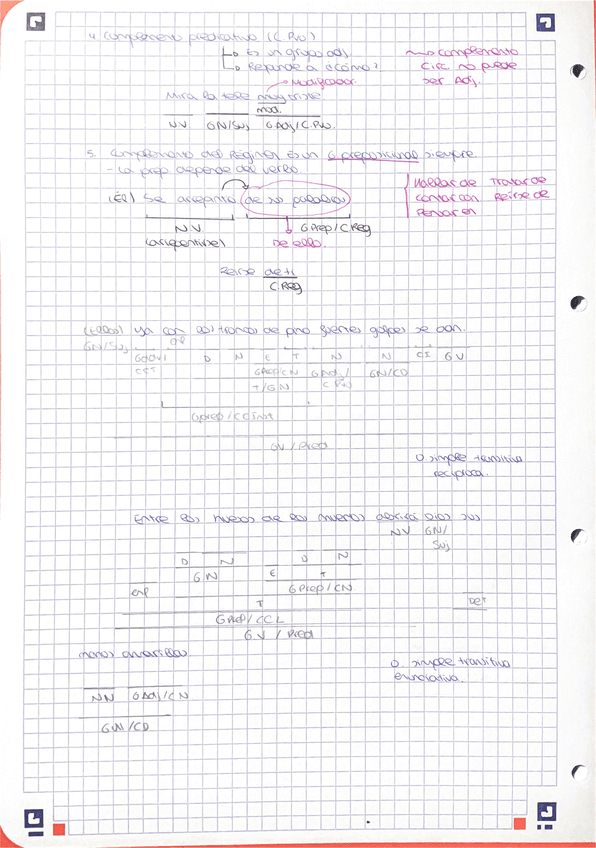 4. Complemento predicativo (C Pvo)
↳ Es un grupo adj.
↳ Responde a ¿cómo?
~~> complemento
circ no puede
ser Adj.
→ Modificador
Mira la tele muy triste
mod.
NV GN/Suj GAdj/C.Pvo.
5. Complemento del Régimen Es un G preposicional siempre
- La prep depende del verbo
(Él) Se arrepintió de sus palabras
Hablar de Tratar de
contar con Reírse de
Pensar en
N.V. GPrep/C Reg
(arrepentirse) De ello.
Reírse de ti
C.Reg
(Ellos) ya con los troncos de pino fuertes golpes se dan.
GN/Suj GAdv/ enl D N E T N N CI GV
CCT GPrep/CN GAdj/ GN/CD
T/GN
GPrep/CCInst
GV/Pred
O simple transitiva
recíproca.
Entre los huesos de los muertos abrirá Dios sus
NV GN/
Suj
D N D N
GN E T
enl GPrep/CN
T Det
GPrep/CCL
GV / Pred
manos amarillas
O. simple transitiva
enunciativa.
NN GAdj/CN
GN/CD